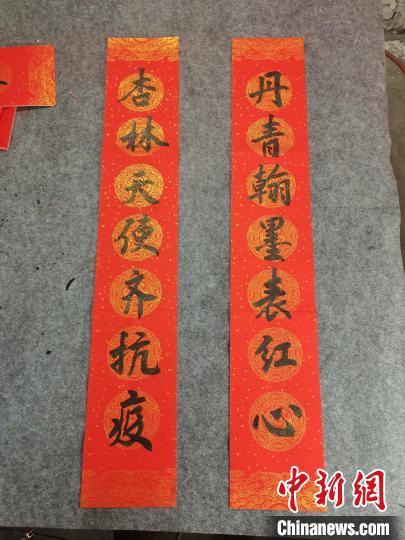 丹青翰墨表红心
杏林天使齐抗疫
中新网
Chinanews.com